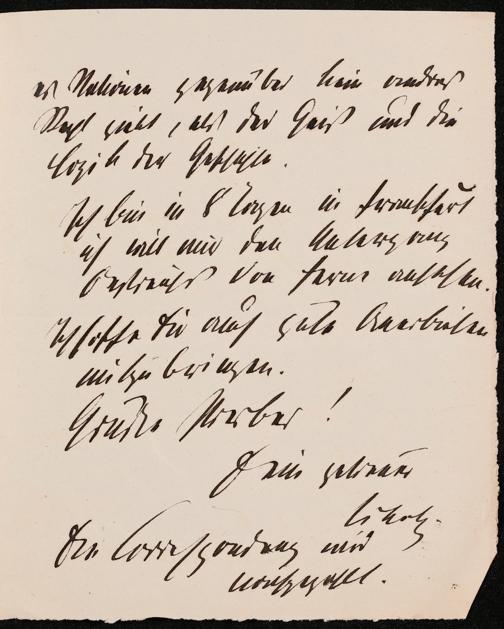 es Nationen gegenüber kein andres
Recht giebt, als der Geist und die
Logik der Geschichte.
Ich bin in 8 Tagen in Frankfurt
ich will mir den Untergang
Östreichs von ferne ansehen.
Ich hoffe Dir auch gute Anerbieten
mitzubringen.
Grüße
!
Dein getreuer
Die Correspondenz wird